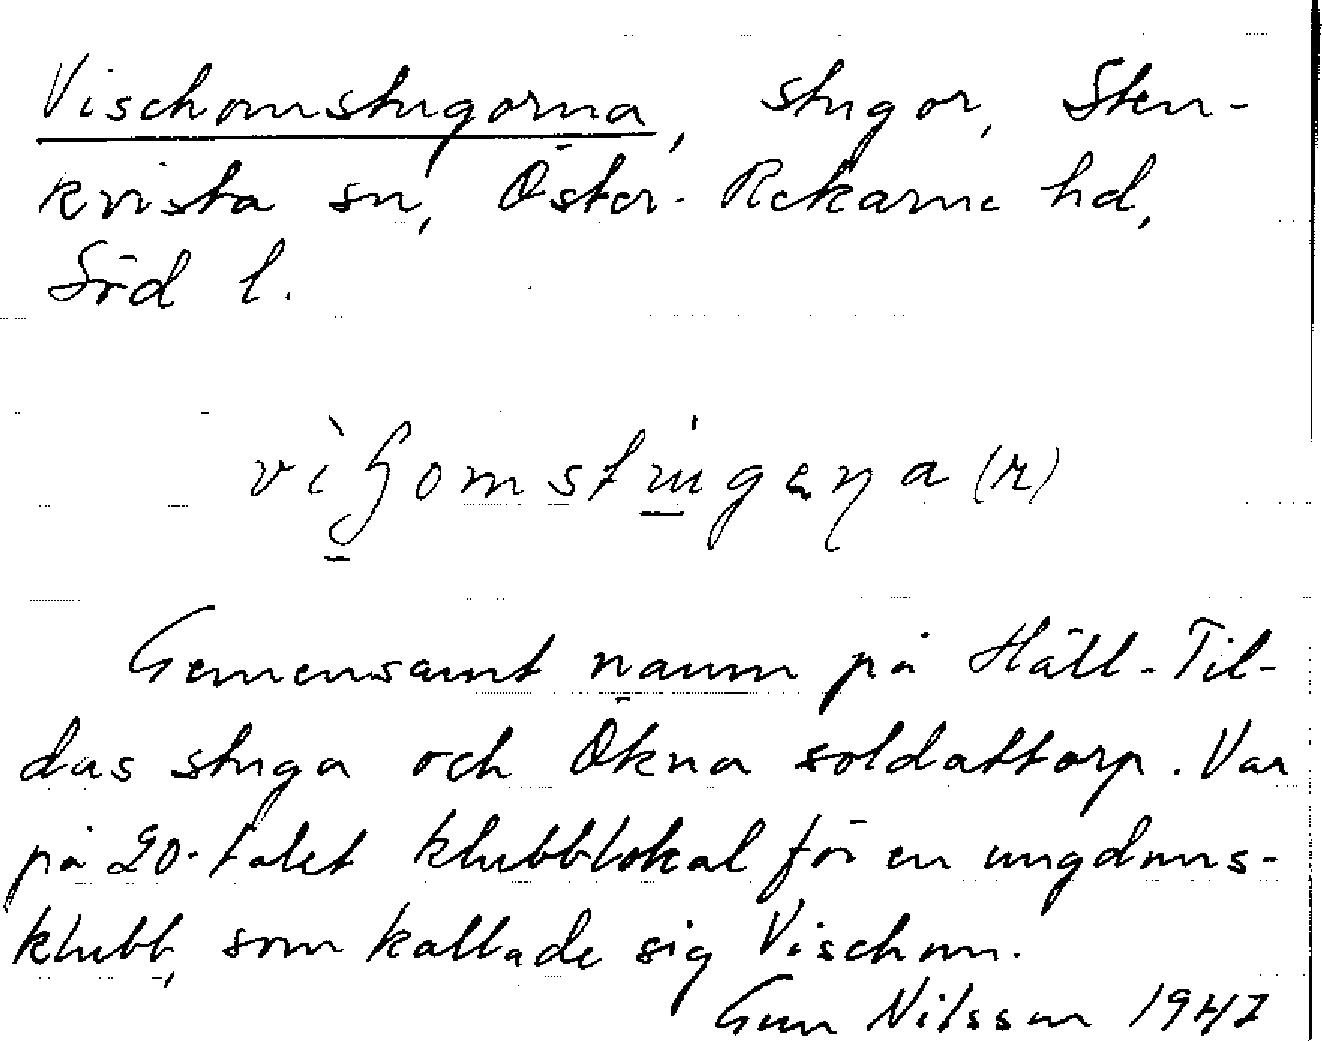 Vischomstugorna, stugor, Sten-
kvista sn, Öster-Rekarne hd,
Söd l.
Gemensamt namn på Häll-Til-
das stuga och Ökna soldattorp. Var
på 20-talet klubblokal för en ungdoms-
klubb, som kallade sig Vischom.
Gun Nilsson 1947